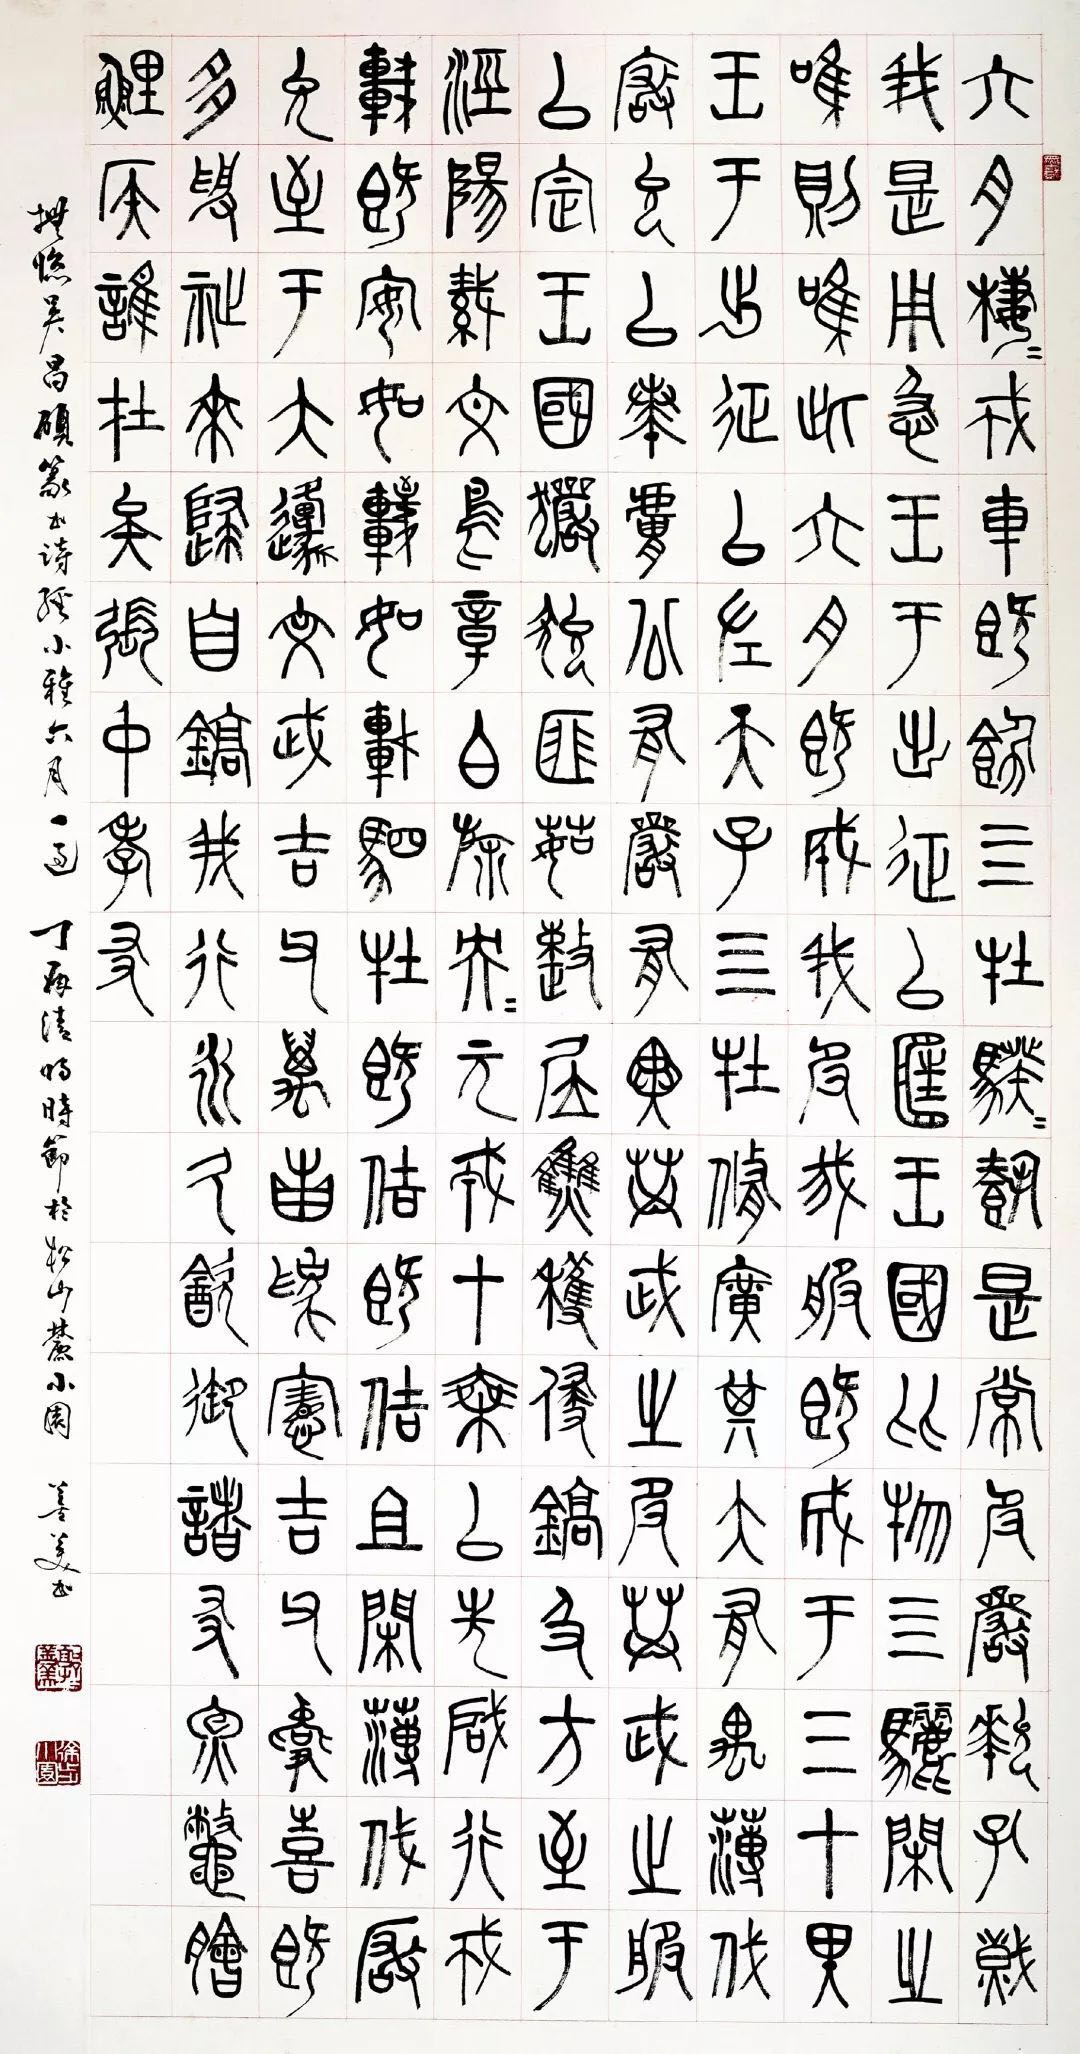 六月棲=戎車既飭四牡騤=載是常服玁狁孔熾
我是用急王于出征以匡王國比物四驪閑之
唯則唯此六月既成我服我服既成于三十里
王于出征以左天子四牡脩廣其大有顒薄伐
玁狁以奏膚公有嚴有翼共武之服共武之服
以定王國玁狁匪茹整居焦穫侵鎬及方至于
涇陽織文鳥章白旆央=元戎十乘以先啟行戎
車既安如輊如軒四牡既佶既佶且閑薄伐玁
狁至于大原文武吉甫萬邦為憲吉甫燕喜既
多受祉來歸自鎬我行永久飲御諸友炰鱉膾
鯉侯誰在矣張中孝友
撫臨吳昌碩篆書詩經小雅六月一過 丁酉清明時節於松山麓小園 善美書